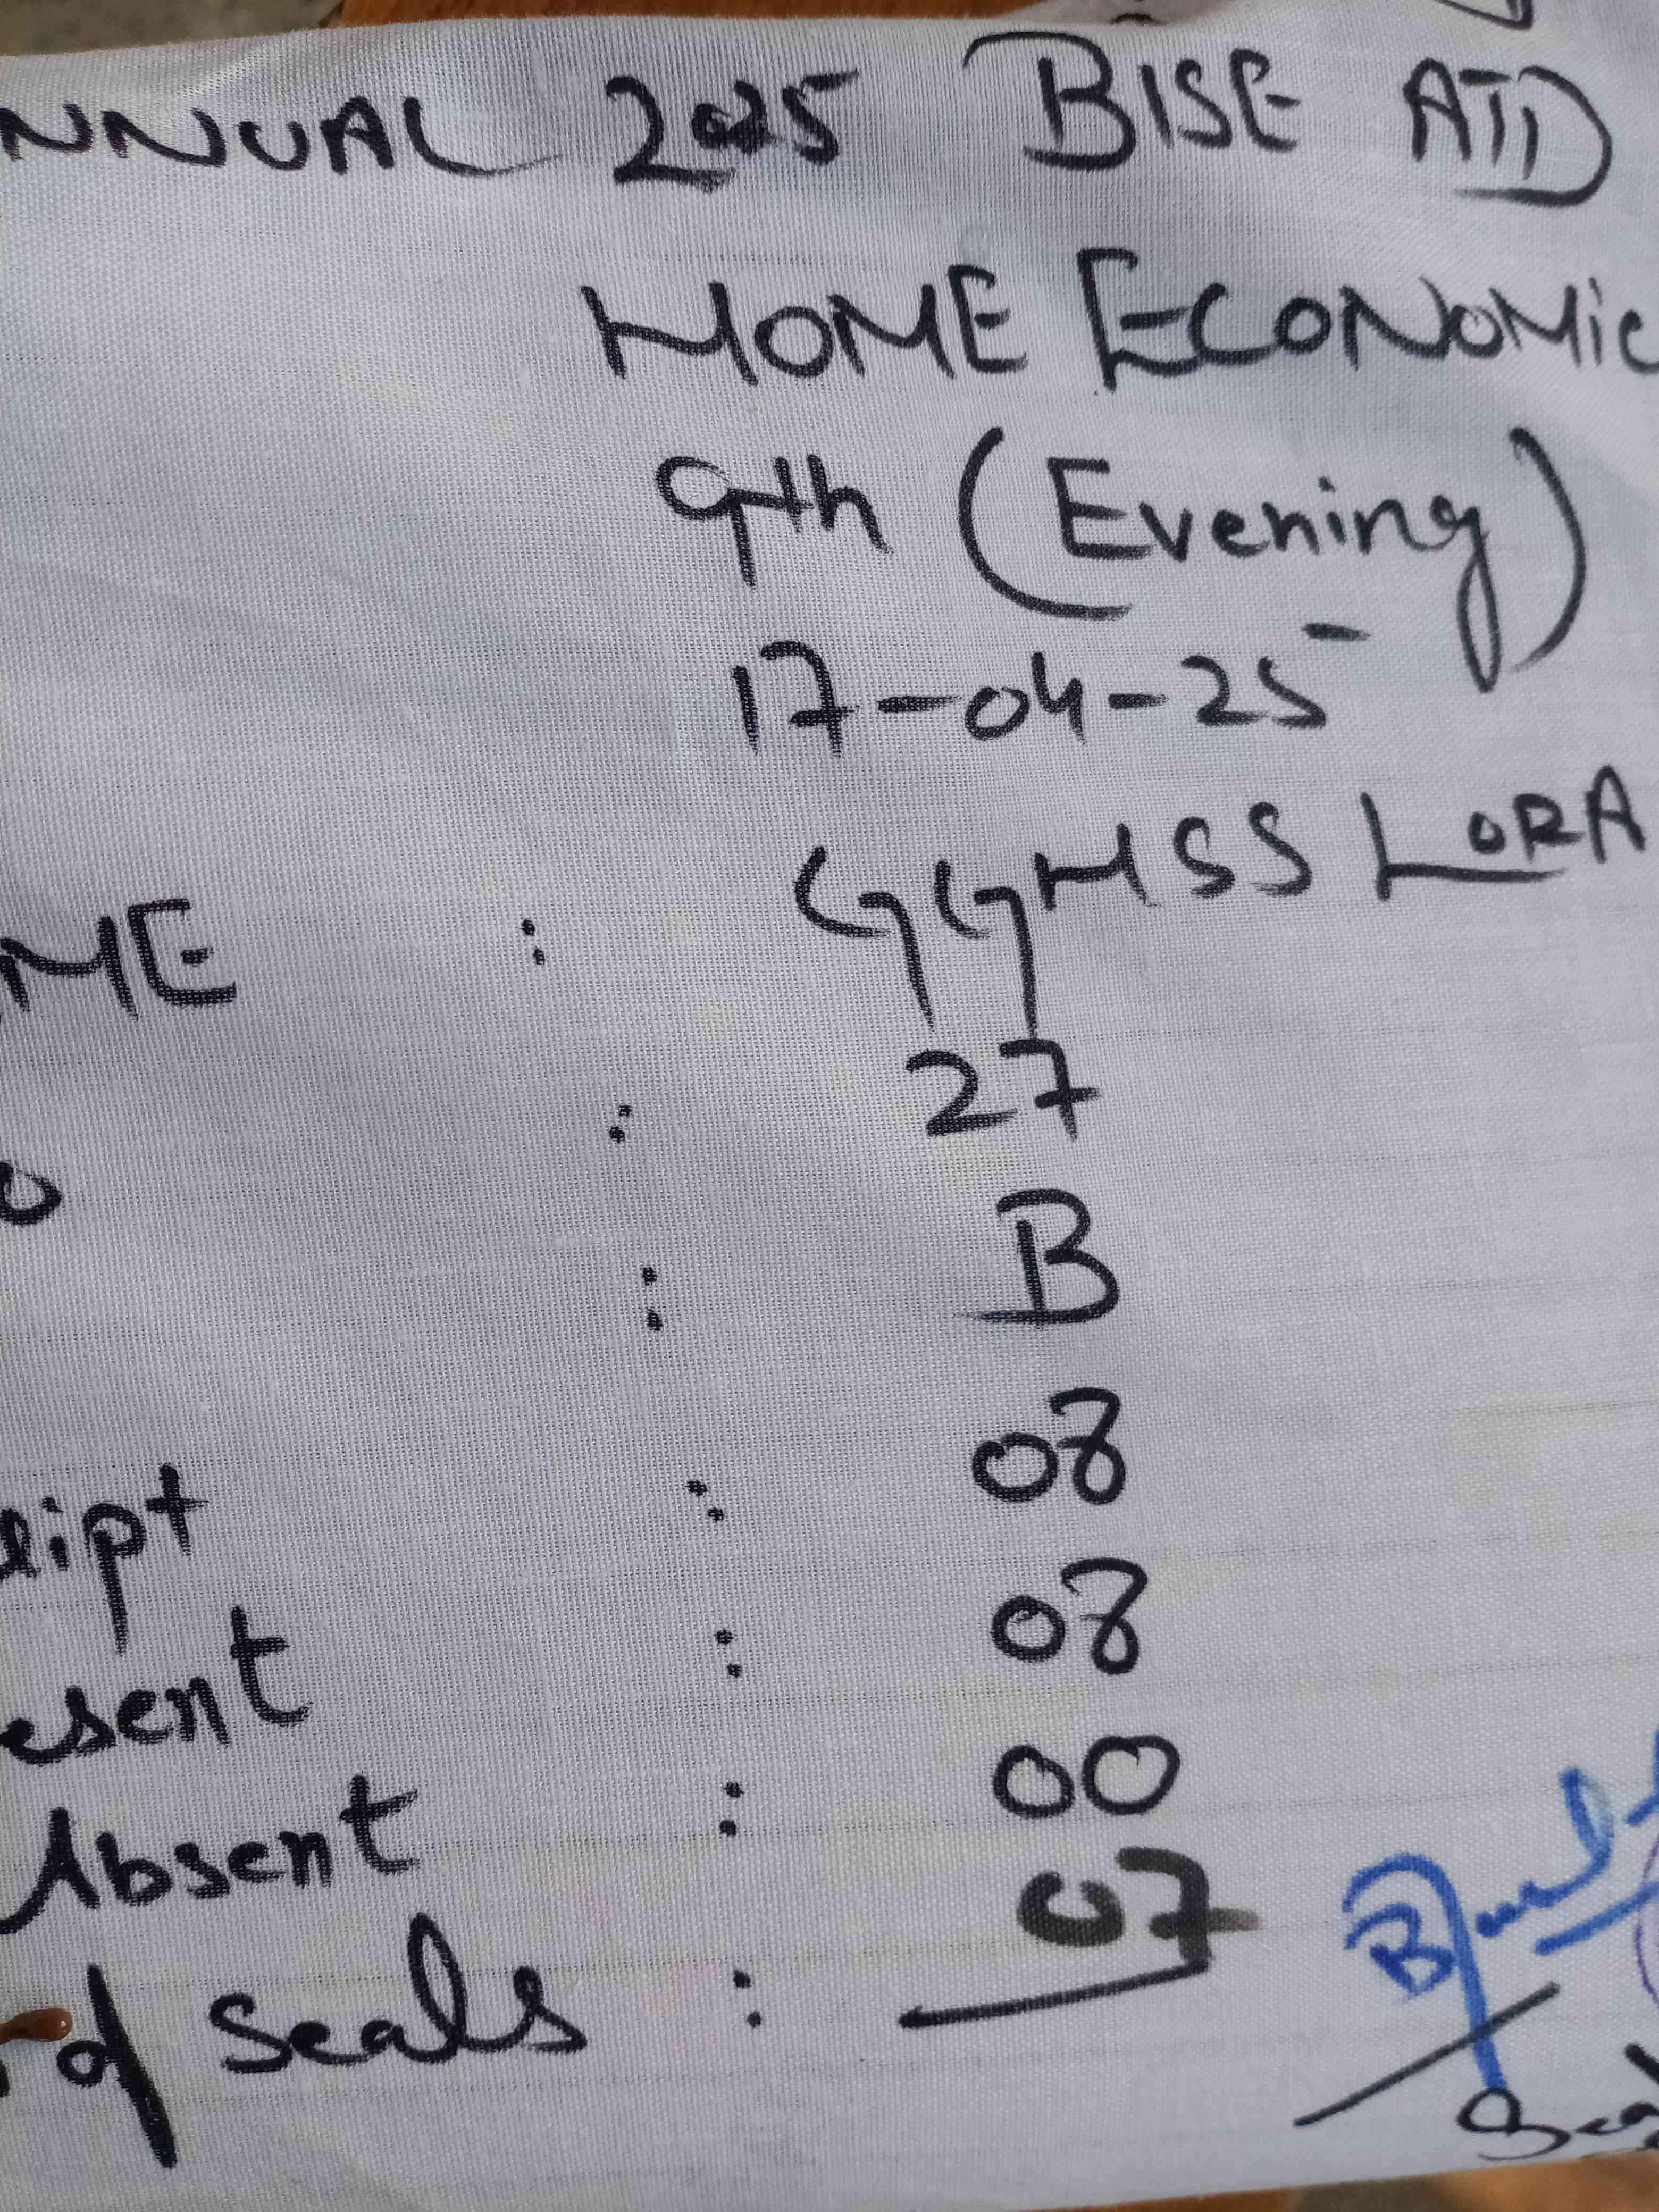 NNUAL 2025 BISE ATD
HOME ECONOMIC
9th (Evening)
17-04-25
ME : GGHSS LORA
: 27
o
: B
eipt : 08
esent : 08
Absent : 00
of seals : 07